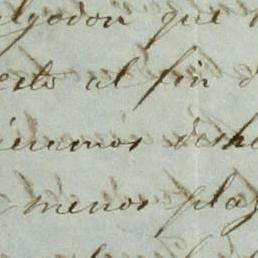 algodon que
esto al fin d
ieramos
menos plaz